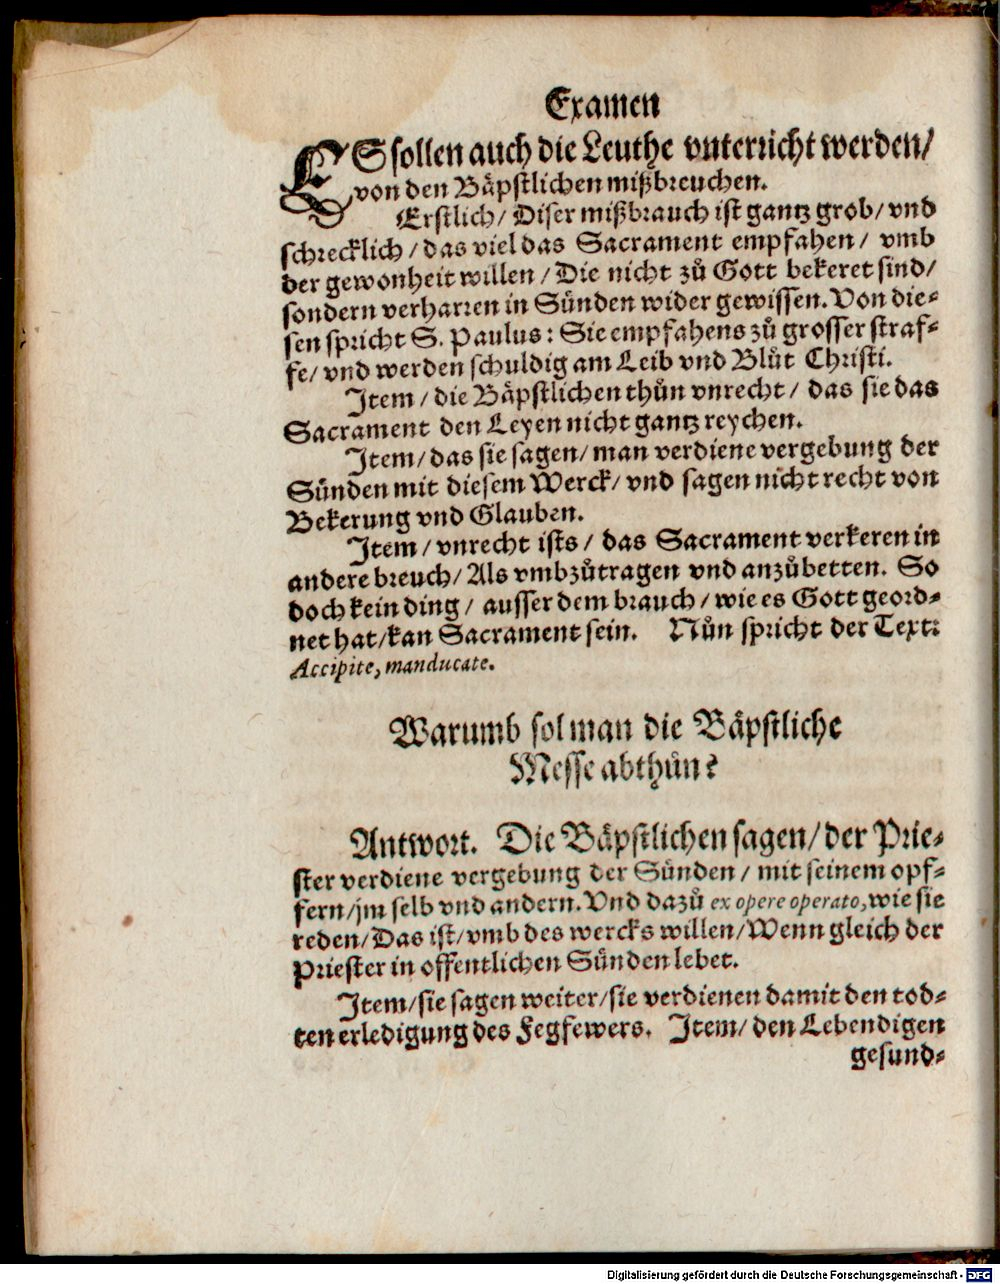 Examen
ES sollen auch die Leuthe vnterricht werden/
von den Bäpstlichen mißbreuchen.
Erstlich/ Diser mißbrauch ist gantz grob/ vnd
schrecklich/ das viel das Sacrament empfahen/ vmb
der gewonheit willen/ Die nicht zů Gott bekeret sind/
sondern verharren in Sünden wider gewissen. Von die⸗
sen spricht S. Paulus: Sie empfahens zů grosser straf⸗
fe/ vnd werden schuldig am Leib vnd Blůt Christi.
Item/ die Bäpstlichen thůn vnrecht/ das sie das
Sacrament den Leyen nicht gantz reychen.
Item/ das sie sagen/ man verdiene vergebung der
Sünden mit diesem Werck/ vnd sagen nicht recht von
Bekerung vnd Glauben.
Item/ vnrecht ists/ das Sacrament verkeren in
andere breuch/ Als vmbzůtragen vnd anzůbetten. So
doch kein ding/ ausser dem brauch/ wie es Gott geord⸗
net hat/ kan Sacrament sein. Nůn spricht der Text:
Accipite, manducate.
Warumb sol man die Bäpstliche
Messe abthůn?
Antwort. Die Bäpstlichen sagen/ der Prie⸗
ster verdiene vergebung der Sünden/ mit seinem opf⸗
fern/ jm selb vnd andern. Vnd dazů ex opere operato, wie sie
reden/ Das ist/ vmb des wercks willen/ Wenn gleich der
Priester in offentlichen Sünden lebet.
Item/ sie sagen weiter/ sie verdienen damit den tod⸗
ten erledigung des Fegfewers. Item/ den Lebendigen
gesund⸗
Digitalisierung gefördert durch die Deutsche Forschungsgemeinschaft - DFG